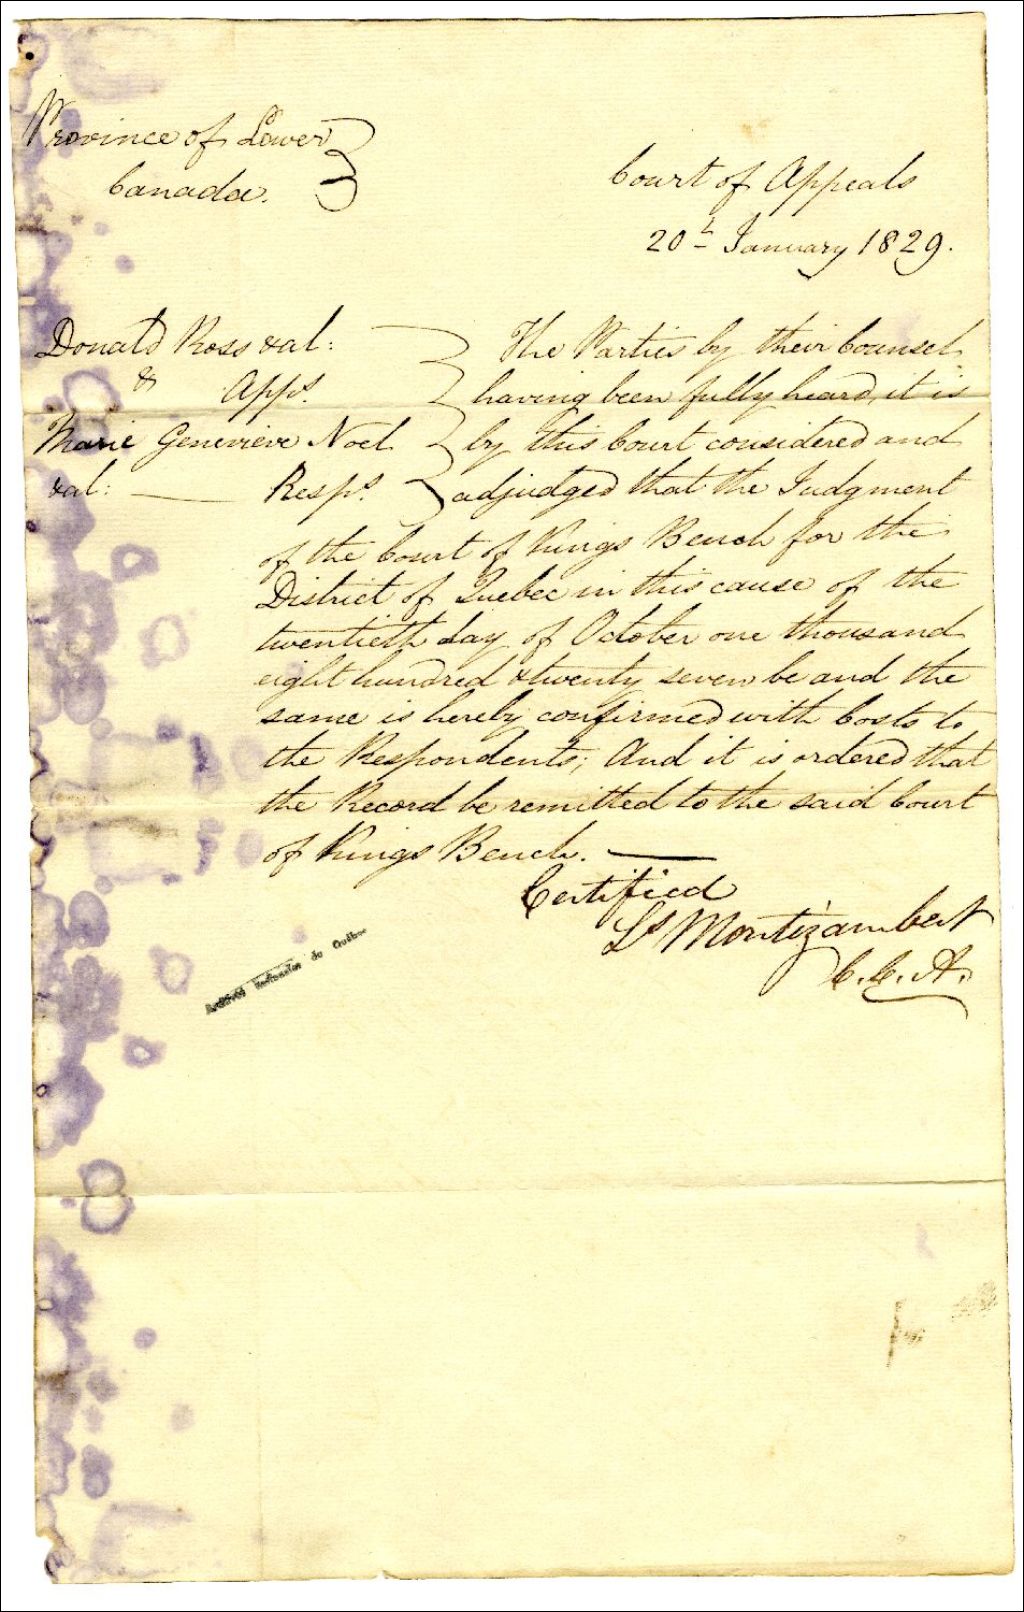 Province of Lower
Canada.
Court of Appeals
20th January 1829.
Donald Ross &al:
& Appts.
Marie Genevieve Noel
&al: — Respts.
The Parties by their Counsel
having been fully heard, it is
by this Court considered and
adjudged that the Judgment
of the Court of Kings Bench for the
District of Quebec in this cause of the
twentieth day of October one thousand
eight hundred & twenty seven be and the
same is hereby confirmed with Costs to
the Respondents; And it is ordered that
the Record be remitted to the said Court
of Kings Bench. —
Certified
Ls Montizambert
C.C.A.
Archives Nationales du Québec